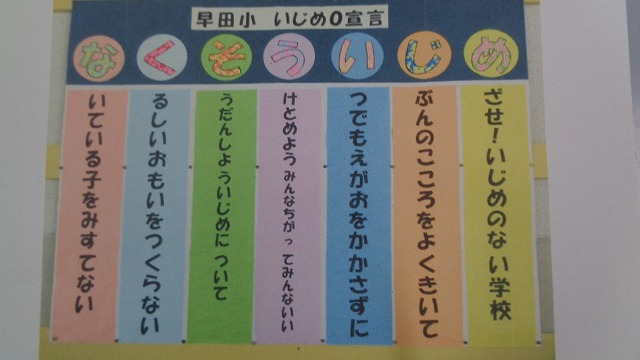 早田小 いじめ0宣言
めざせ!いじめのない学校
じぶんのこころをよくきいて
いつでもえがおをかかさずに
うけとめよう みんなちがってみんないい
そうだんしよういじめについて
くるしいおもいをつくらない
ないている子をみすてない